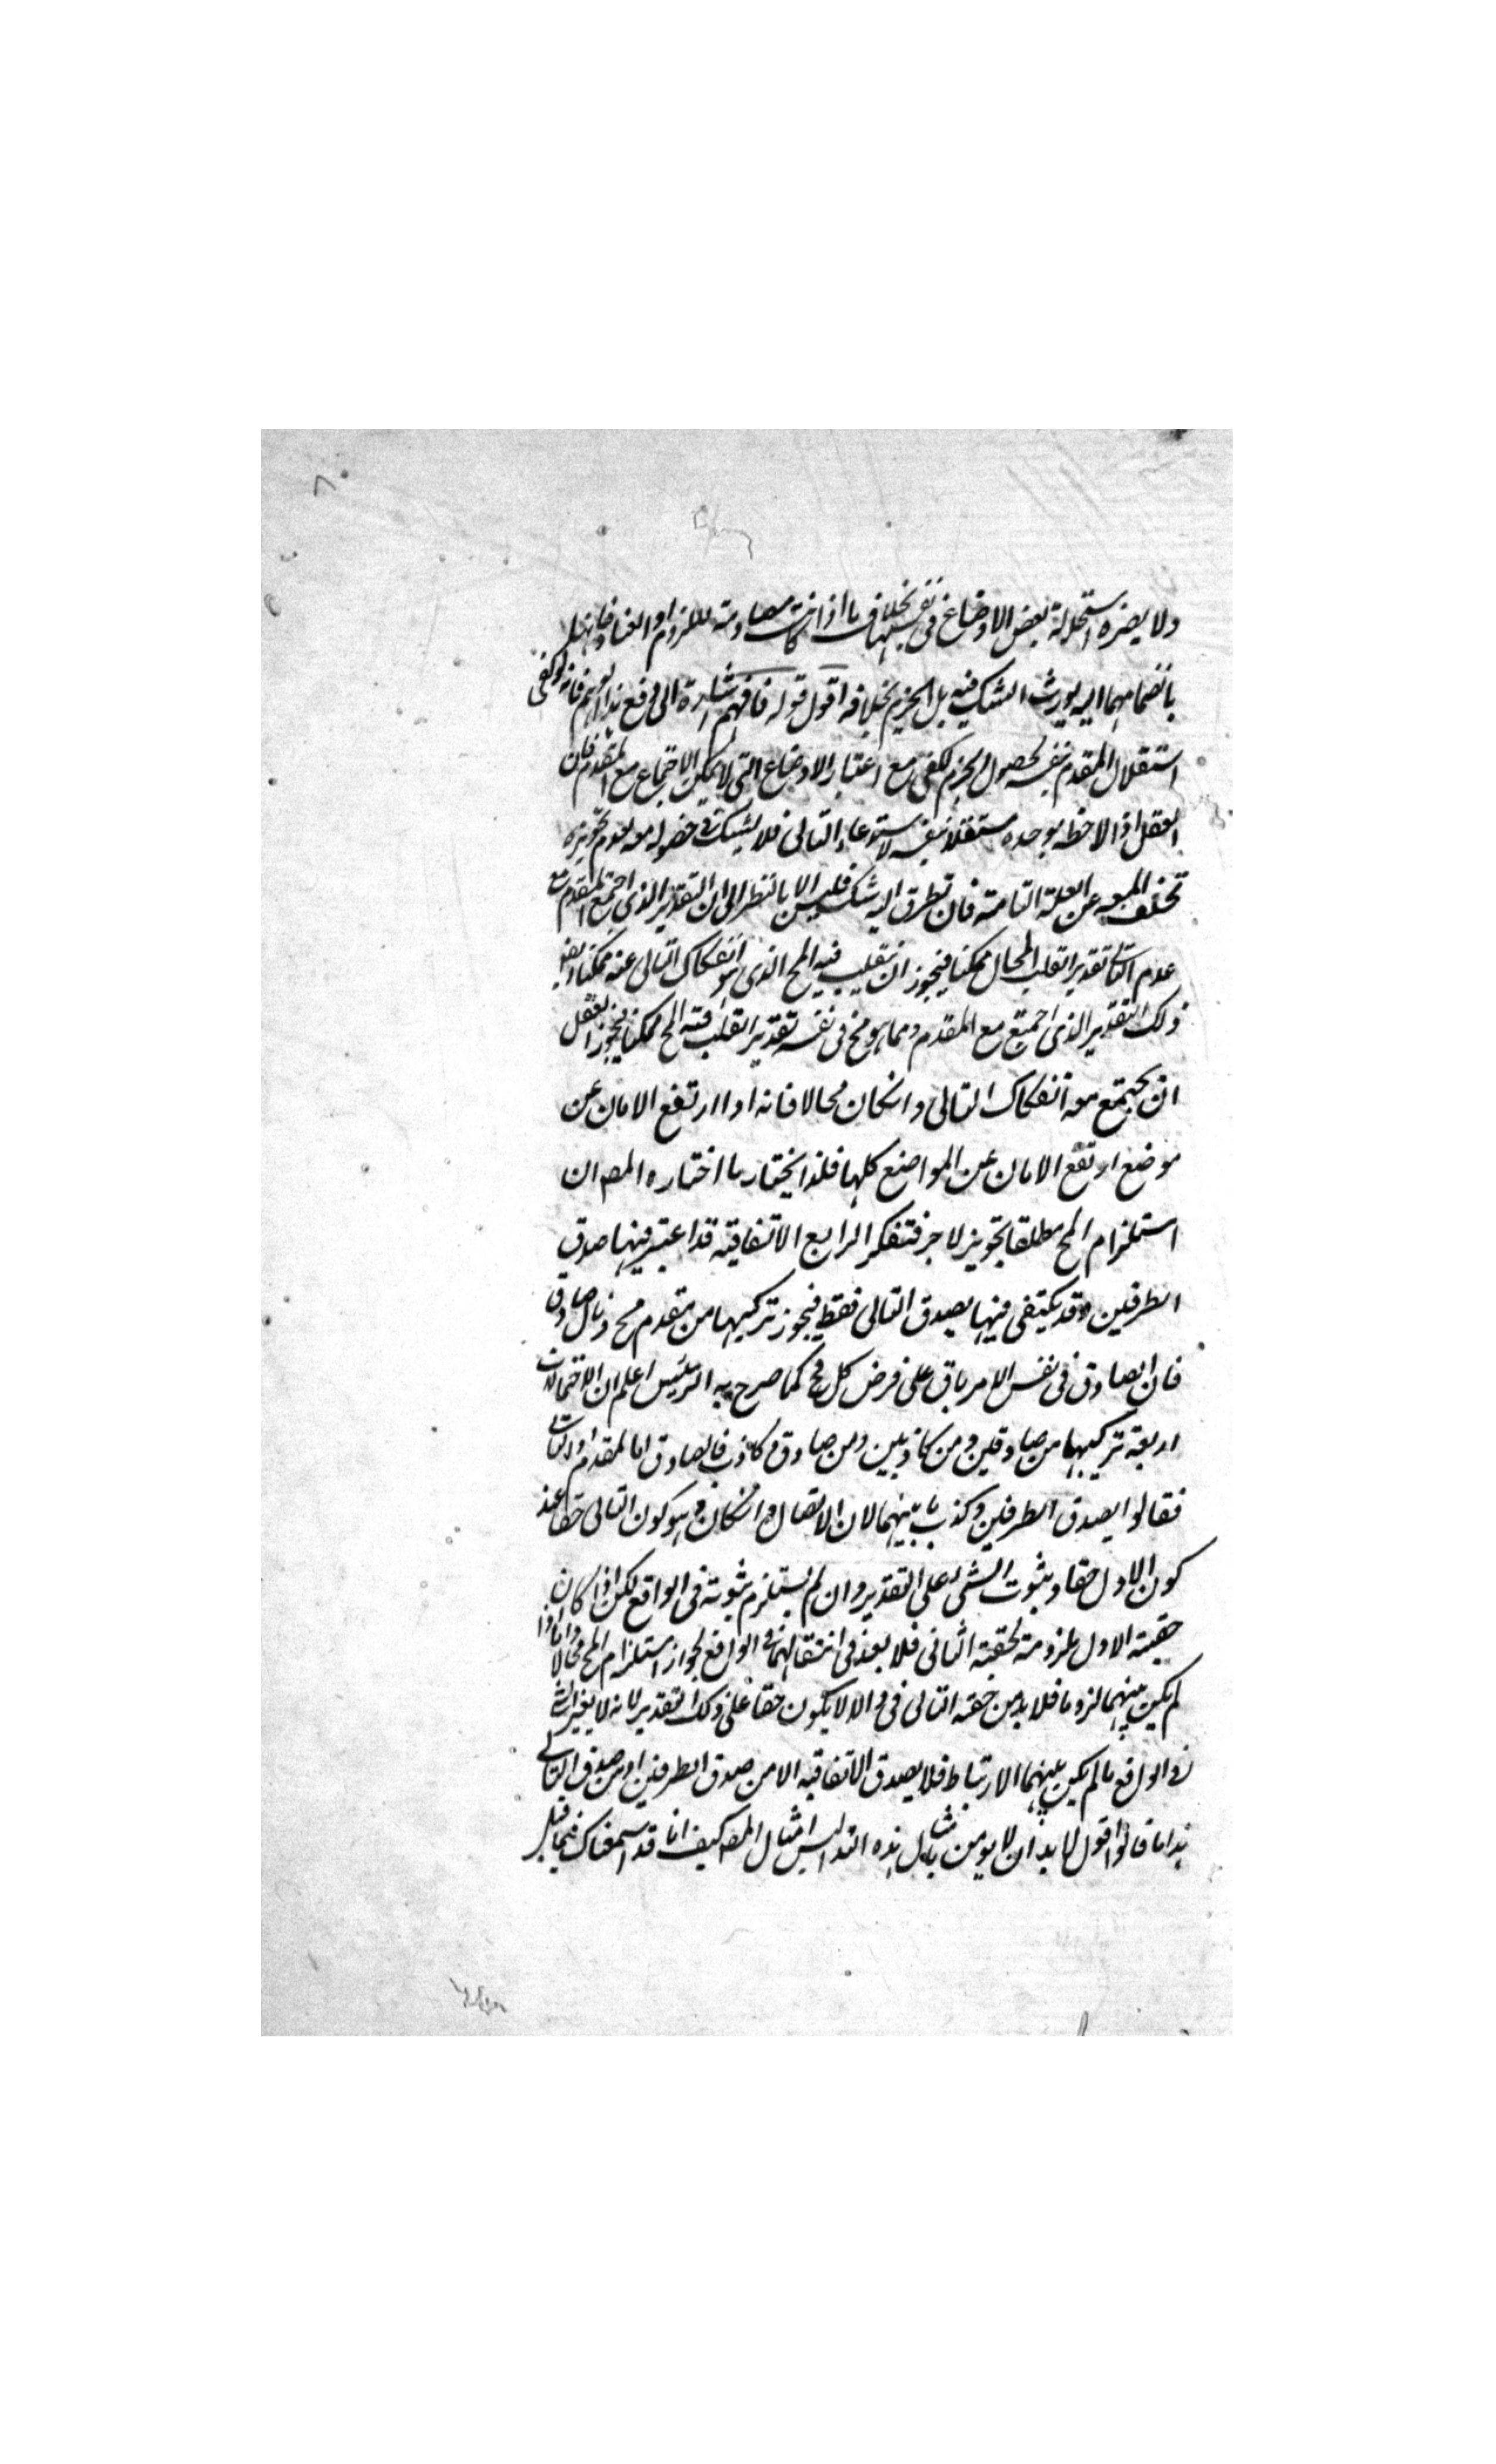 ولا يضره استحالة بعض الاوضاع في نفسها بخلاف ما اذا كانت مصادمة للزوم او العناد فانها
بانضمامهما اليه يورث الشك فيه بل الجزم بخلافه اقول قوله فافهم اشارة الى دفع هذا الوهم فانه لو كفى
استقلال المقدم بنفسه لحصول الجزم لكفى مع اعتبار الاوضاع التي لا يمكن الاجتماع مع المقدم فان
العقل اذا لاحظه بوحده مستقلا بنفسه لاستدعاء التالى فلا يشك في حضوله معه لعدم تجويزه
تخلف المع عن العلة التامة فان تطرق اليه شك فليس الا بالنظر الى ان التقدير الذى اجتمع المقدم مع
عدم التالى تقدير انقلب المحال ممكنا فيجوز ان ينقلب فيه المح الذى هو انفكاك التالى عنه ممكنا
ذلك التقدير الذى اجتمع مع المقدم ومما هو مح في نفسه تقدير انقلب فيه المح ممكنا فيجوز العقل
ان يجتمع معه انفكاك التالى وانكان محالا فانه اذا ارتفع الامان عن
موضع ارتفع الامان عن المواضع كلها فلذا يختار ما اختاره المص ان
استلزام المح مطلقا تجويز لا جزم فتفكر الرابع الاتفاقية قد اعتبر فيها صدق
الطرفين وقد يكتفى فيها بصدق التالى فقط فيجوز تركيبها من مقدم مح وتال صادق
فان الصادق في نفس الامر باق على فرض كل مح كما صرح به الرئيس اعلم ان الاحتمالات
اربعة تركيبها من صادقين ومن كاذبين ومن صادق وكاذب فالصادق اما المقدم او التالى
فقالوا يصدق الطرفين وكذب ما بينهما لان الاتصال وانكان هو كون التالى حقا عند
كون الاول حقا وثبوت الشئ على التقدير وان لم يستلزم ثبوته في الواقع لكن اذا كان
حقية الاول ملزومة لحقية الثانى فلا بعد في انتفائهما في الواقع لجواز استلزام المح محالا واما اذا
لم يكن بينهما لزوما فلا بد من حقية التالى في والا لا يكون حقا على ذلك التقدير لانه لا يغير الشئ
في الواقع ما لم يكن بينهما الارتباط فلا يصدق الاتفاقية الا من صدق الطرفين او من صدق التالى
هذا ما قالوا اقول لا بد ان لا يومن بامثال هذه التداليس امثال المص كيف انا قد اسمعناك فيما قبل